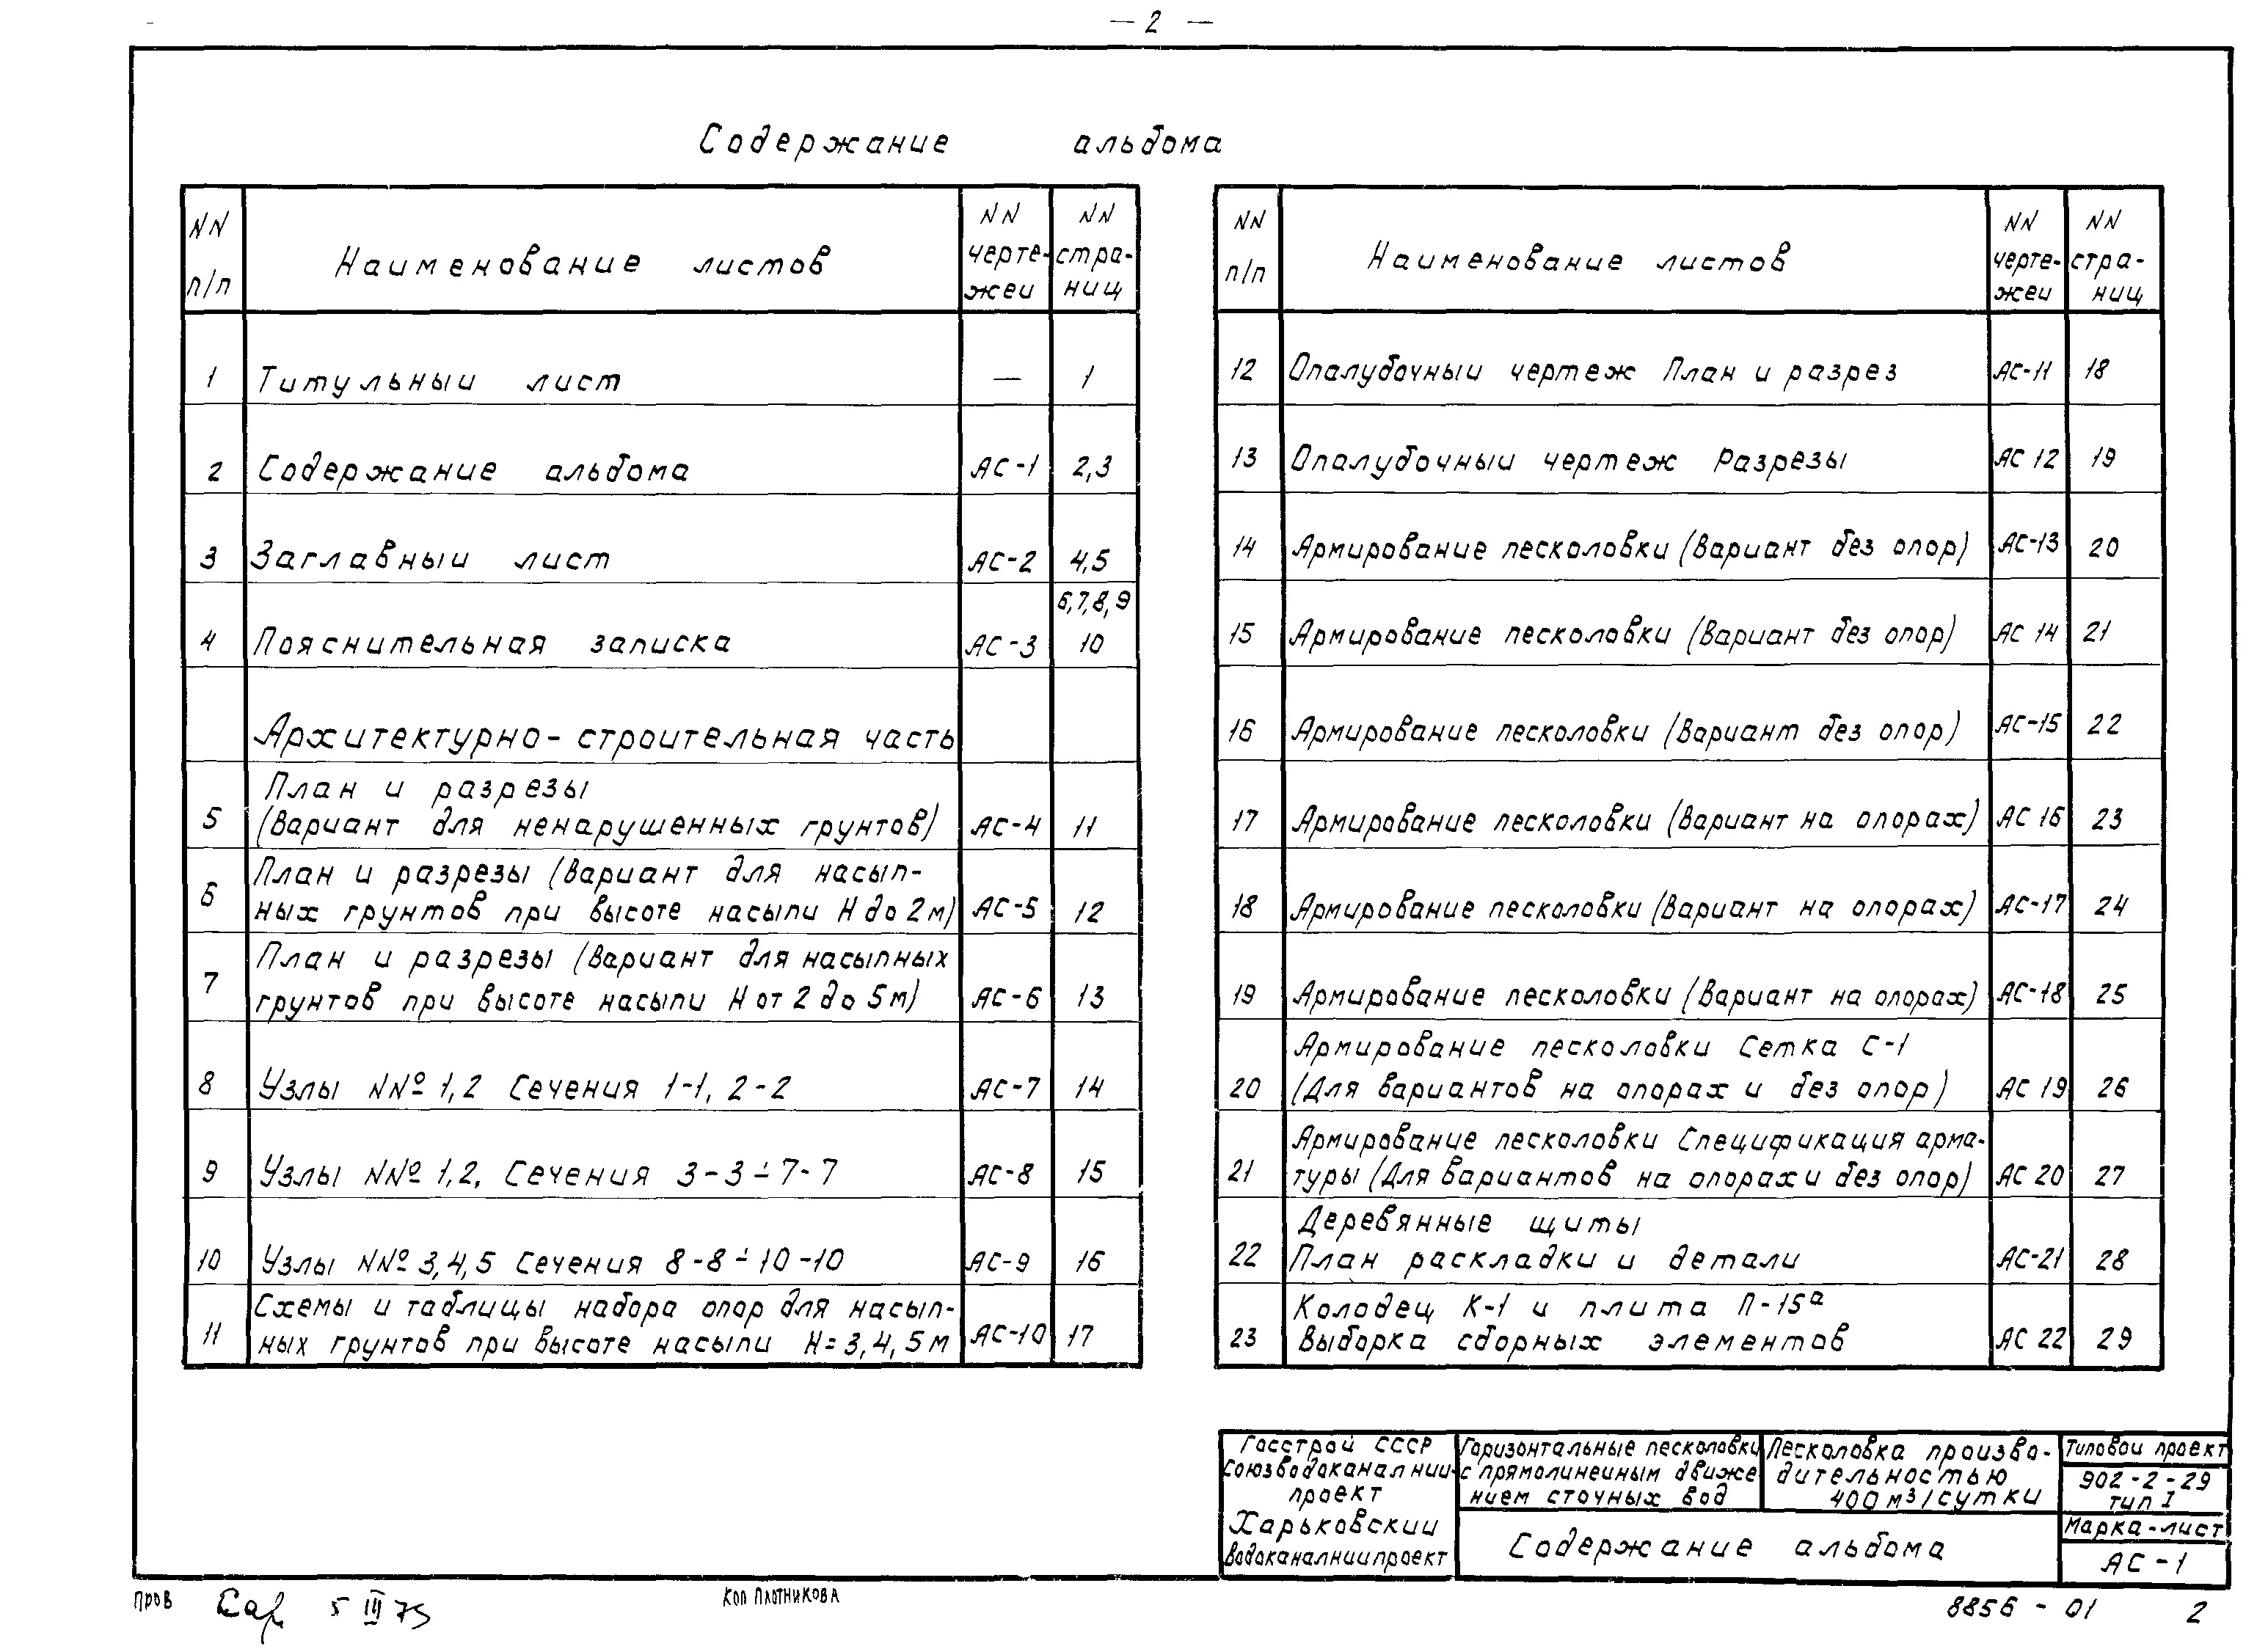 — 2 —
Содержание альбома
NN п/п Наименование листов NN чертежей NN страниц
1 Титульный лист — 1
2 Содержание альбома АС-1 2,3
3 Заглавный лист АС-2 4,5
4 Пояснительная записка АС-3 6,7,8,9 10
Архитектурно-строительная часть
План и разрезы
5 (Вариант для ненарушенных грунтов) АС-4 11
План и разрезы (Вариант для насып-
6 ных грунтов при высоте насыпи Н до 2м) АС-5 12
План и разрезы (Вариант для насыпных
7 грунтов при высоте насыпи Н от 2 до 5м) АС-6 13
8 Узлы NN° 1,2 Сечения 1-1, 2-2 АС-7 14
9 Узлы NN° 1,2, Сечения 3-3÷7-7 АС-8 15
10 Узлы NN° 3,4,5 Сечения 8-8÷10-10 АС-9 16
Схемы и таблицы набора опор для насып-
11 ных грунтов при высоте насыпи Н=3,4,5м АС-10 17
NN п/п Наименование листов NN чертежей NN страниц
12 Опалубочный чертеж План и разрез АС-11 18
13 Опалубочный чертеж Разрезы АС 12 19
14 Армирование песколовки (Вариант без опор) АС-13 20
15 Армирование песколовки (Вариант без опор) АС 14 21
16 Армирование песколовки (Вариант без опор) АС-15 22
17 Армирование песколовки (Вариант на опорах) АС 16 23
18 Армирование песколовки (Вариант на опорах) АС-17 24
19 Армирование песколовки (Вариант на опорах) АС-18 25
Армирование песколовки Сетка С-1
20 (Для вариантов на опорах и без опор) АС 19 26
Армирование песколовки Спецификация арма-
21 туры (Для вариантов на опорах и без опор) АС 20 27
Деревянные щиты
22 План раскладки и детали АС-21 28
Колодец К-1 и плита П-15а
23 Выборка сборных элементов АС 22 29
Госстрой СССР
Союзводоканалнии-
проект
Харьковский
Водоканалниипроект
Горизонтальные песколовки
с прямолинейным движе
нием сточных вод
Песколовка произво-
дительностью
400 м³/сутки
Типовой проект
902-2-29
тип I
Содержание альбома
Марка-лист
АС-1
пров 5 III 75
Коп Плотникова
8856-01 2